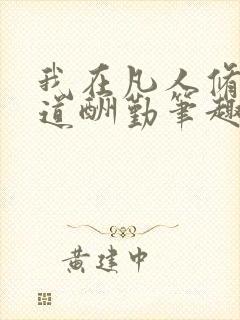 我在凡人修
道酬勤笔趣
黄建中